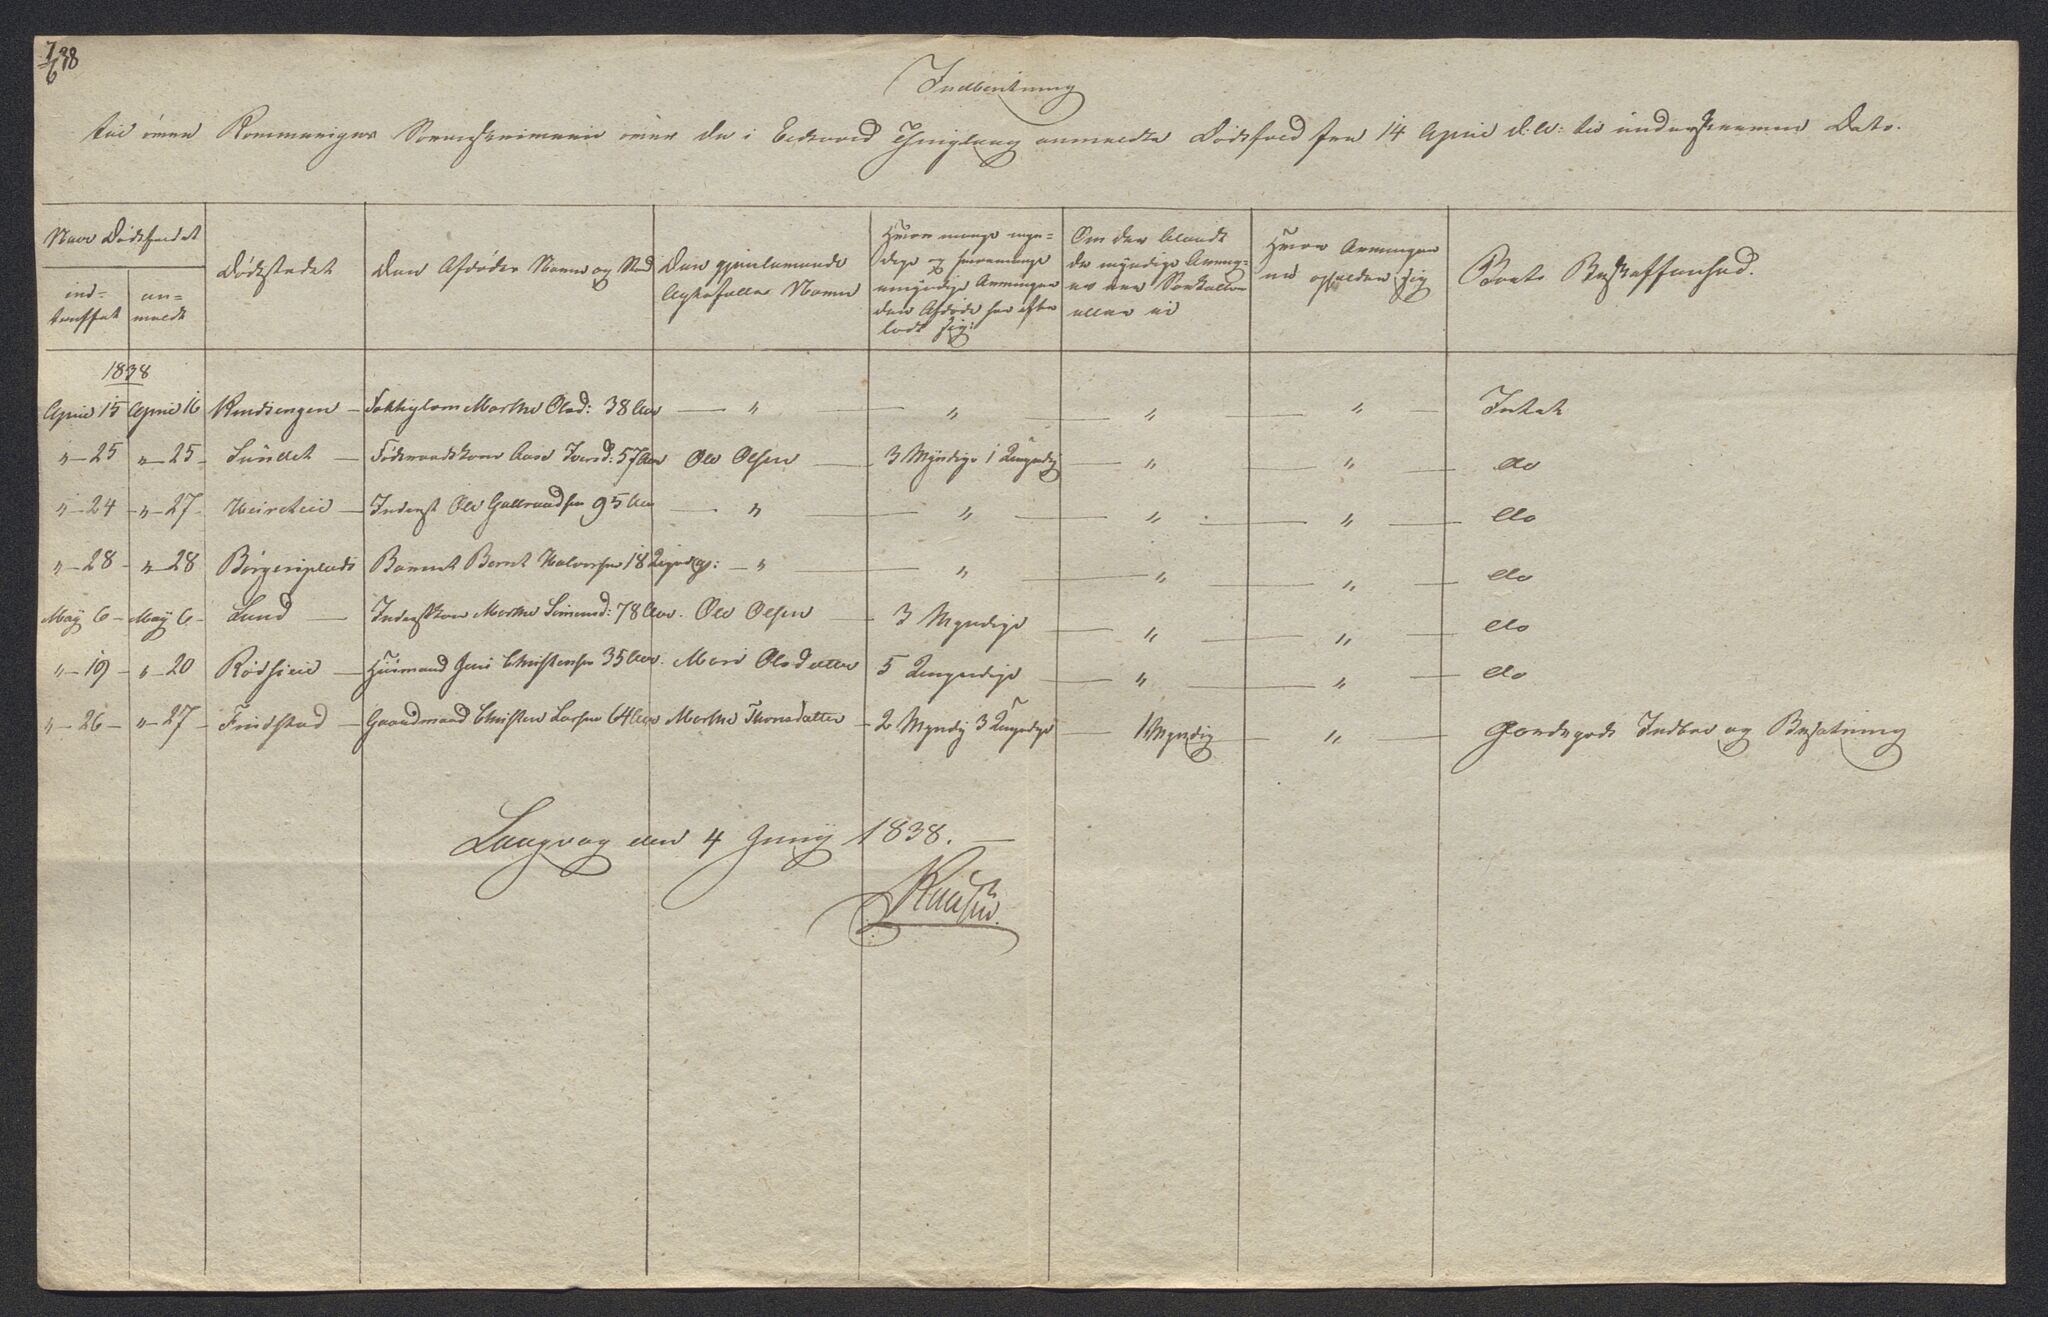 7/6 38
Indberetning
til övre Rommeriges Sorenskriverie over de i Eidsvold Thinglaug anmeldte Dödsfald fra 14 April d. A: til underskrevne Dato.
Naar Dödsfaldet
ind-
truffet
an-
meldt
Dödsstedet
Den Afdödes Navn og Stand
Den gjenlevende
Ægtefælles Navn
Hvor mange myn-
dige og hvormange
umyndige Arvinger
den Afdöde har efter
ladt sig:
Om der blandt
de myndige Arving-
er ere Sorkaldte
eller ei
Hvor Arvingerne
opholder sig
Boets Beskaffenhed.
1838
April 15 April 16 Rudsengen - Fattiglem Marthe Olsd: 38 Aar — " — " — " — " — Intet
" - 25 " - 25 - Sundet - Föderaadskone Aase Iversd: 57 Aar Ole Olsen — 3 Myndige 1 Umyndig — " — " — do
" - 24 - " - 27 - - Inderst Ole Gulbrandsen 95 Aar — " — " — " — " — do
" - 28 - " - 28 Börgersplads Barnet Bernt Halvorsen 18 Uger: — " — " — " — " — do
May 6 - May 6 - Lund — Inderstkone Marthe Simensd: 78 Aar. Ole Olsen — 3 Myndige — " — " — do
" - 19 - " - 20 Rödsie - Huusmand Jens Christensen 35 Aar. Mari Olsdatter 5 Umyndige — " — " — do
" - 26 - " - 27 - Findstad - Gaardmand Christen Larsen 64 Aar Marthe Thorsdatter - 2 Myndig 3 Umyndige — 1 Myndig — " — Jordegods Indboe og Besætning
Laugvog den 4 Junij 1838. —